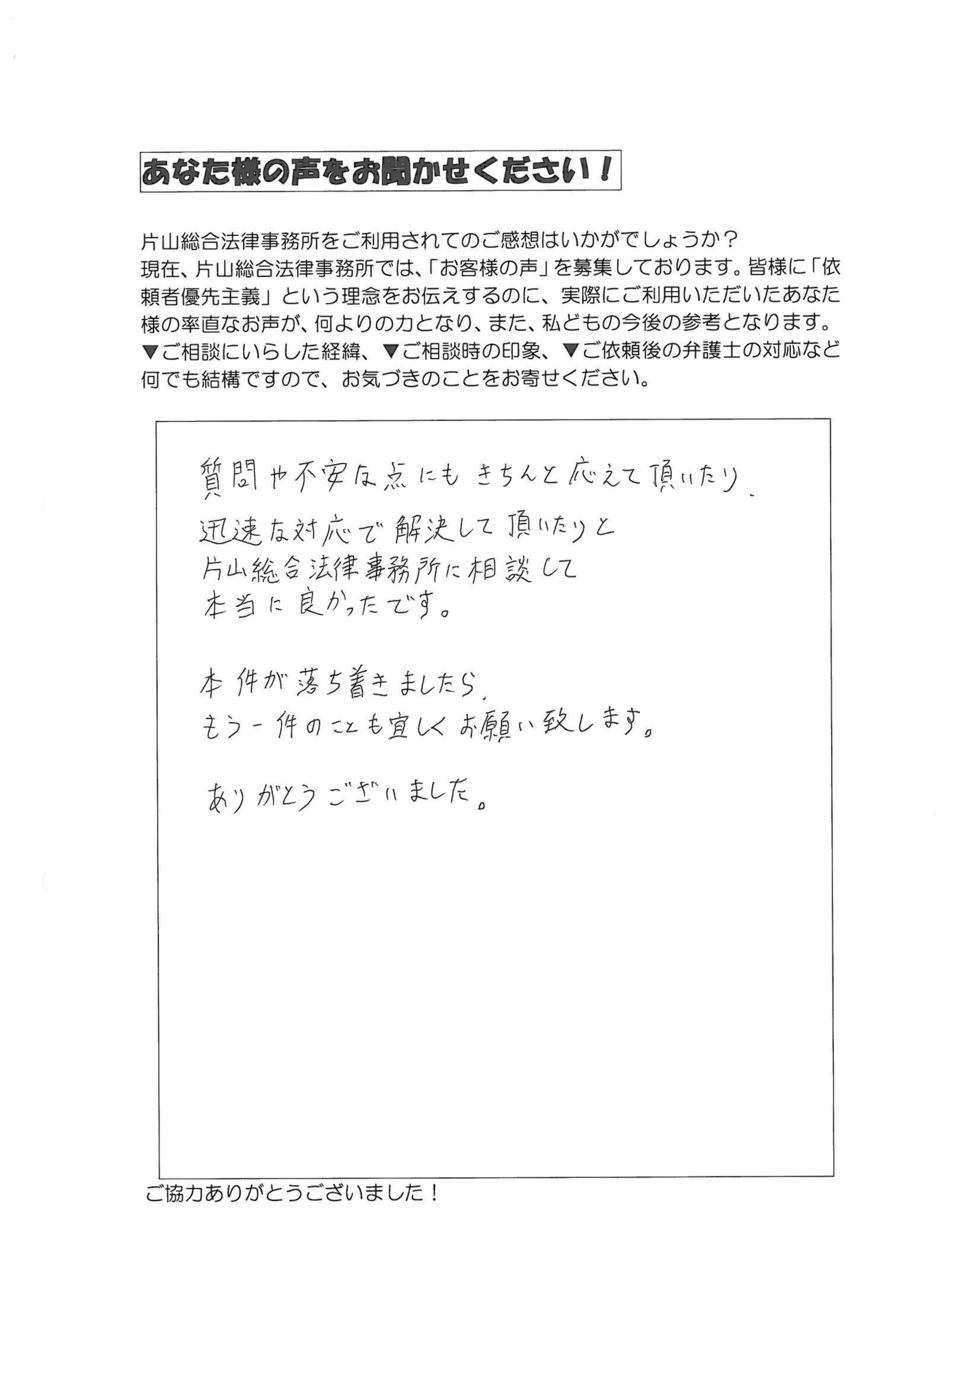 あなた様の声をお聞かせください！
片山総合法律事務所をご利用されてのご感想はいかがでしょうか？
現在、片山総合法律事務所では、「お客様の声」を募集しております。皆様に「依
頼者優先主義」という理念をお伝えするのに、実際にご利用いただいたあなた
様の率直なお声が、何よりの力となり、また、私どもの今後の参考となります。
▼ご相談にいらした経緯、▼ご相談時の印象、▼ご依頼後の弁護士の対応など
何でも結構ですので、お気づきのことをお寄せください。
質問や不安な点にもきちんと応えて頂いたり、
迅速な対応で解決して頂いたりと
片山総合法律事務所に相談して
本当に良かったです。
本件が落ち着きましたら、
もう一件のことも宜しくお願い致します。
ありがとうございました。
ご協力ありがとうございました！